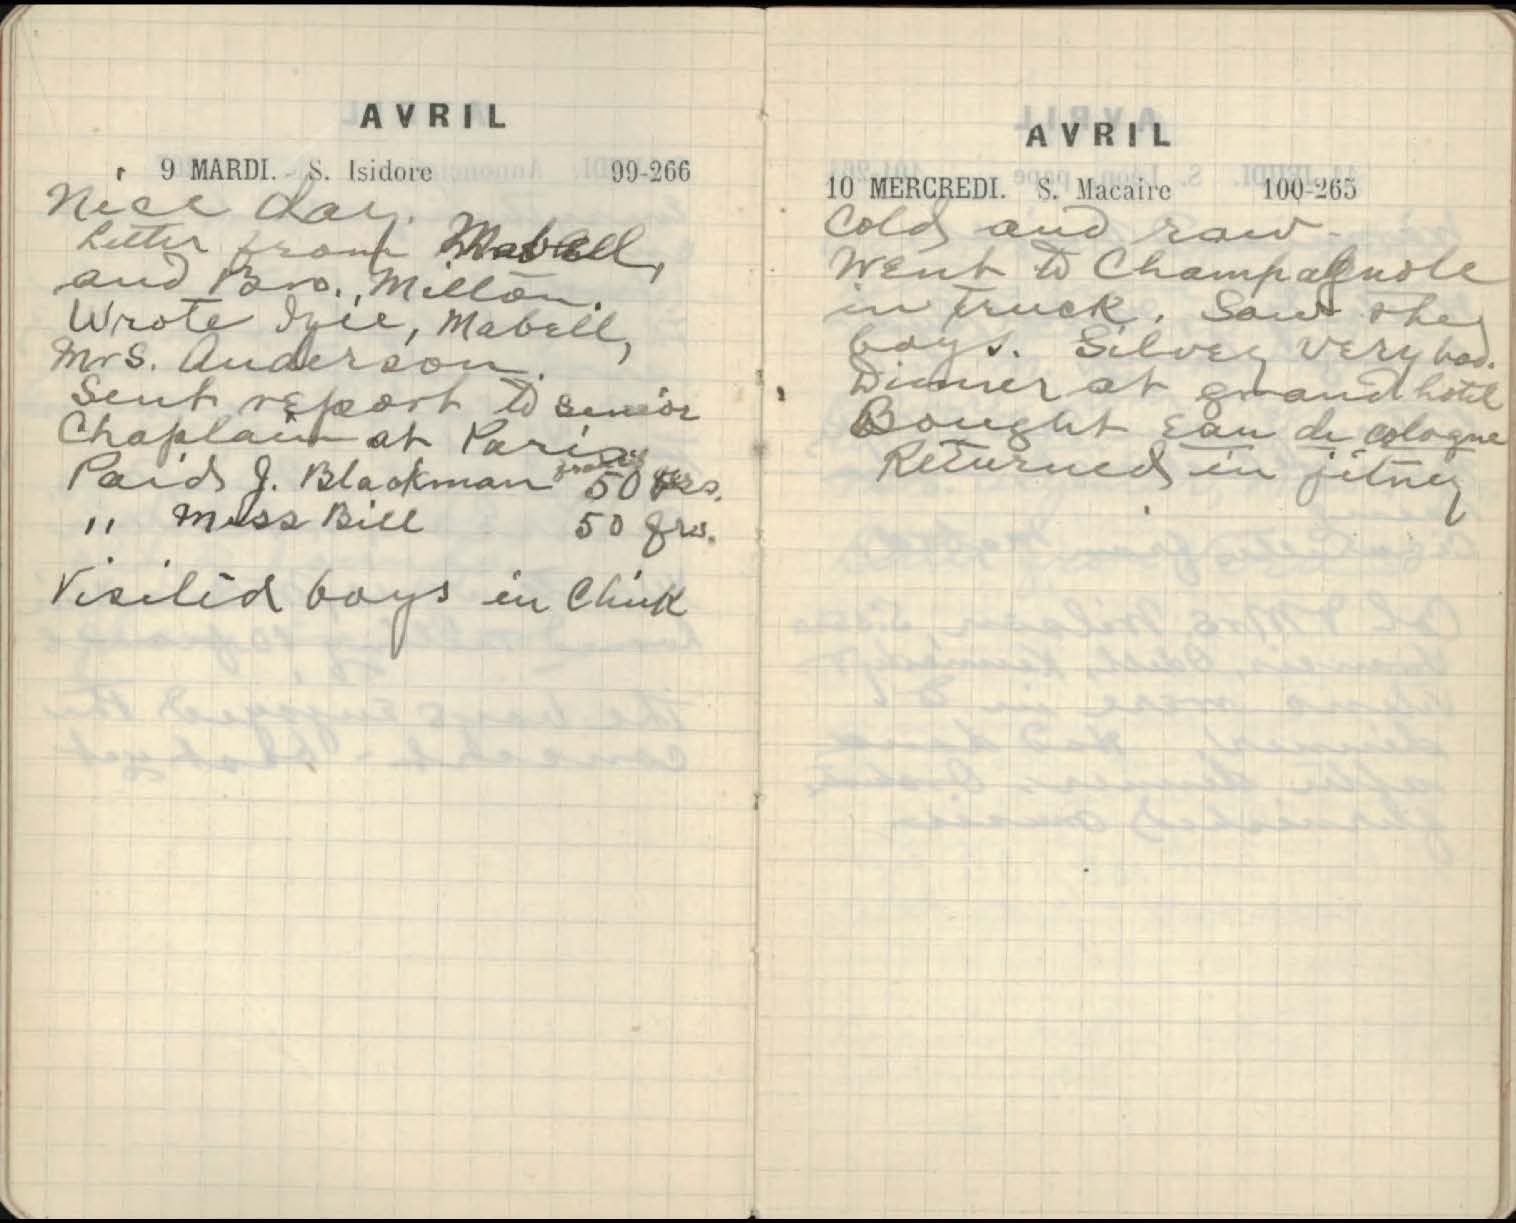 AVRIL
9 MARDI. S. Isidore 99-266
Nice day.
Letter from Mabell,
and Bro. Milton.
Wrote Izie, Mabell,
Mrs. Anderson.
Sent report to Senior
Chaplain at Paris
Paid J. Blackman 50 frs.
" Miss Bill 50 frs.
Visited boys in Clink
AVRIL
10 MERCREDI. S. Macaire 100-265
Cold and raw-
Went to Champagnole
in truck. Saw the
boys. Silvey very bad.
Dinner at grand hotel
Bought Eau de cologne
Returned in jitney